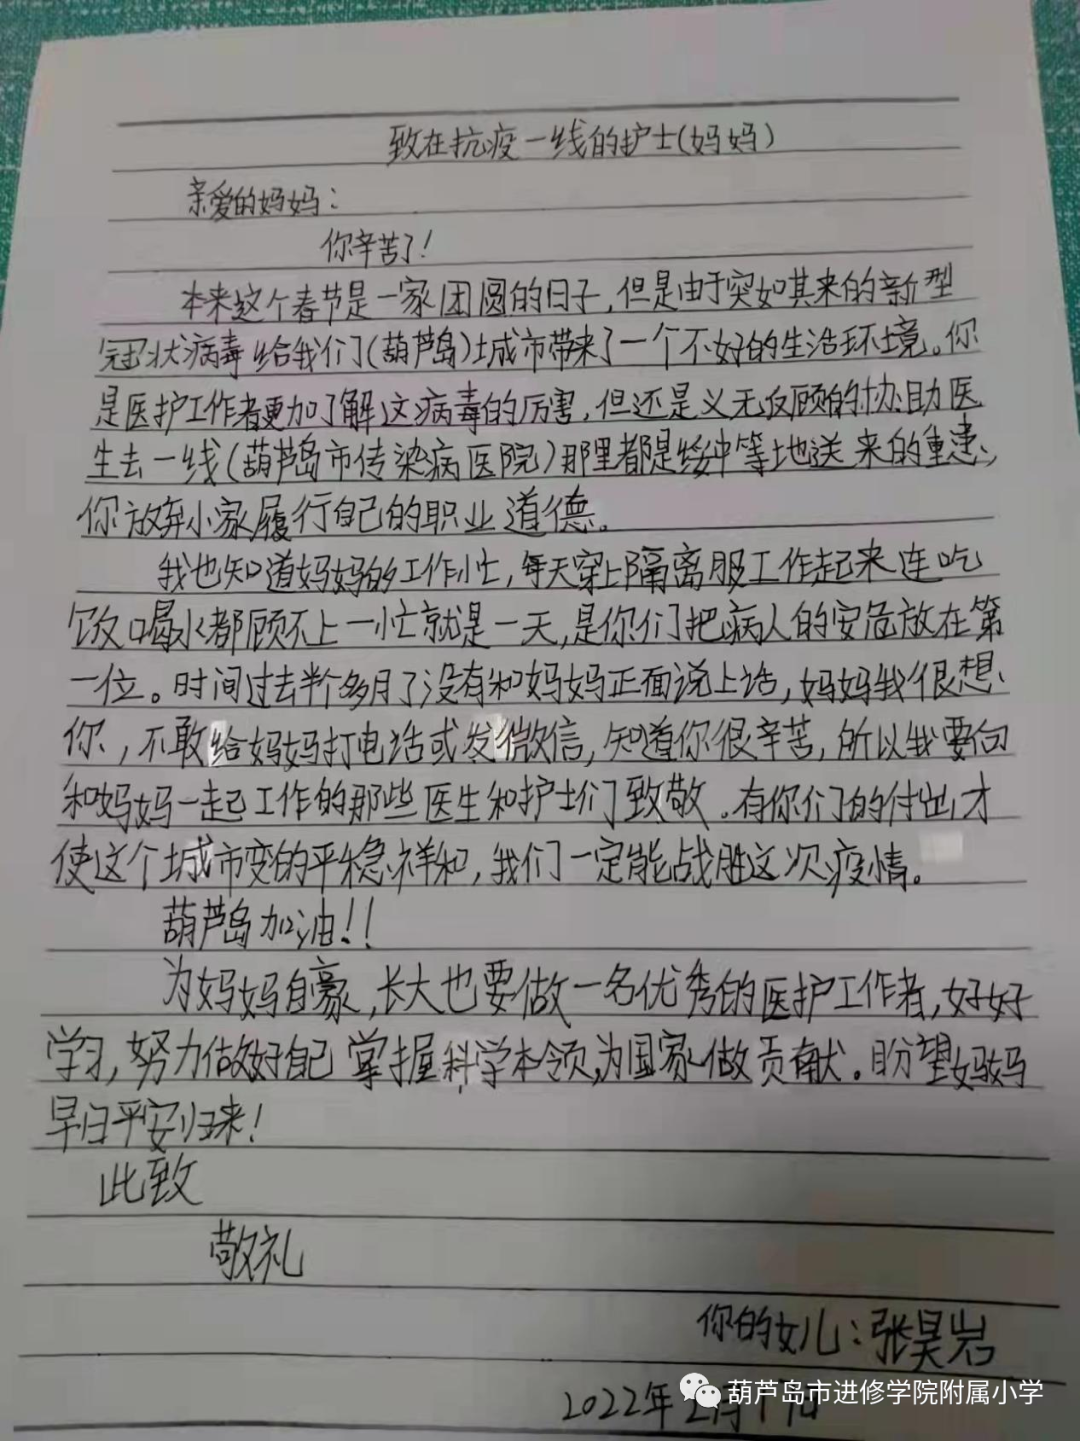 致在抗疫一线的护士(妈妈)
亲爱的妈妈:
你辛苦了!
本来这个春节是一家团圆的日子,但是由于突如其来的新型
冠状病毒给我们(葫芦岛)城市带来了一个不好的生活环境。你
是医护工作者更加了解这病毒的厉害,但还是义无反顾的协助医
生去一线(葫芦岛市传染病医院)那里都是绥中等地送来的重患、
你放弃小家履行自己的职业道德。
我也知道妈妈的工作忙,每天穿上隔离服工作起来连吃
饭喝水都顾不上一忙就是一天,是你们把病人的安危放在第
一位。时间过去半个多月了没有和妈妈正面说上话,妈妈我很想
你,不敢给妈妈打电话或发微信,知道你很辛苦,所以我要向
和妈妈一起工作的那些医生和护士们致敬。有你们的付出才
使这个城市变的平稳祥和,我们一定能战胜这次疫情。
葫芦岛加油!!
为妈妈自豪,长大也要做一名优秀的医护工作者,好好
学习,努力做好自己掌握科学本领,为国家做贡献。盼望妈妈
早日平安归来!
此致
敬礼
你的女儿:张昊岩
2022年2月
葫芦岛市进修学院附属小学